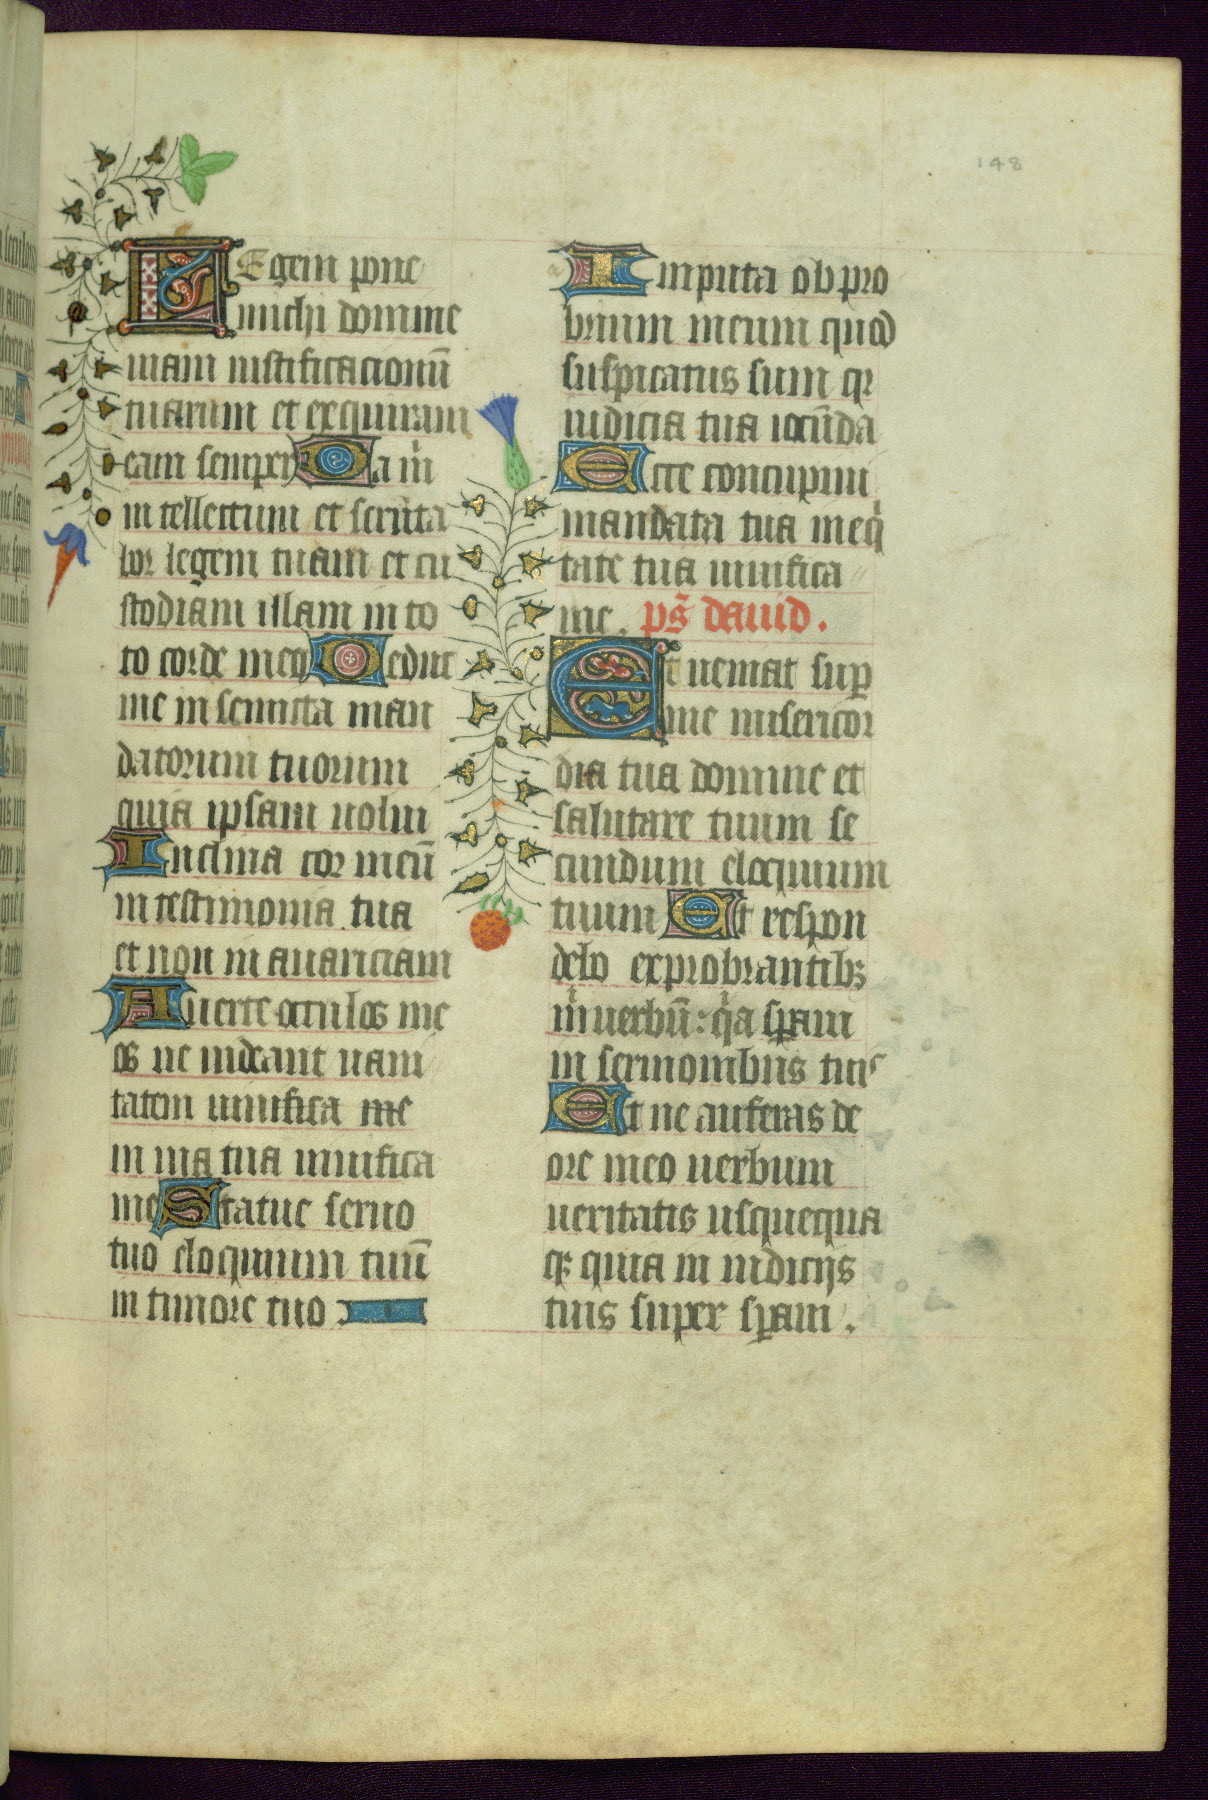 148
Legem pone
michi domine
uiam iustificacionū
tuarum et exquiram
eam semper Da m̄
intellectum et scruta
bor legem tuam et cu
stodiam illam in to
to corde meo Deduc
me in semita man
datorum tuorum
quia ipsam uolui
Inclina cor meū
in testimonia tua
et non in auariciam
Auerte oculos me
os ne uideant uani
tatem uiuifica me
in uia tua uiuifica
me Statue seruo
tuo eloquium tuū
in timore tuo
Imputa obpro
brium meum quod
suspicatus sum qr
iudicia tua iocūda
Ecce concupiui
mandata tua in eq̇
tate tua uiuifica
me. pš dauid.
Et ueniat sup̄
me misericor
dia tua domine et
salutare tuum se
cundum eloquium
tuum Et respon
debo exprobrantibꝫ
m̄ uerbū: qa spam
in sermonibus tuis
Et ne auferas de
ore meo uerbum
ueritatis usquequa
qꝫ quia in iudicijs
tuis super spaui.